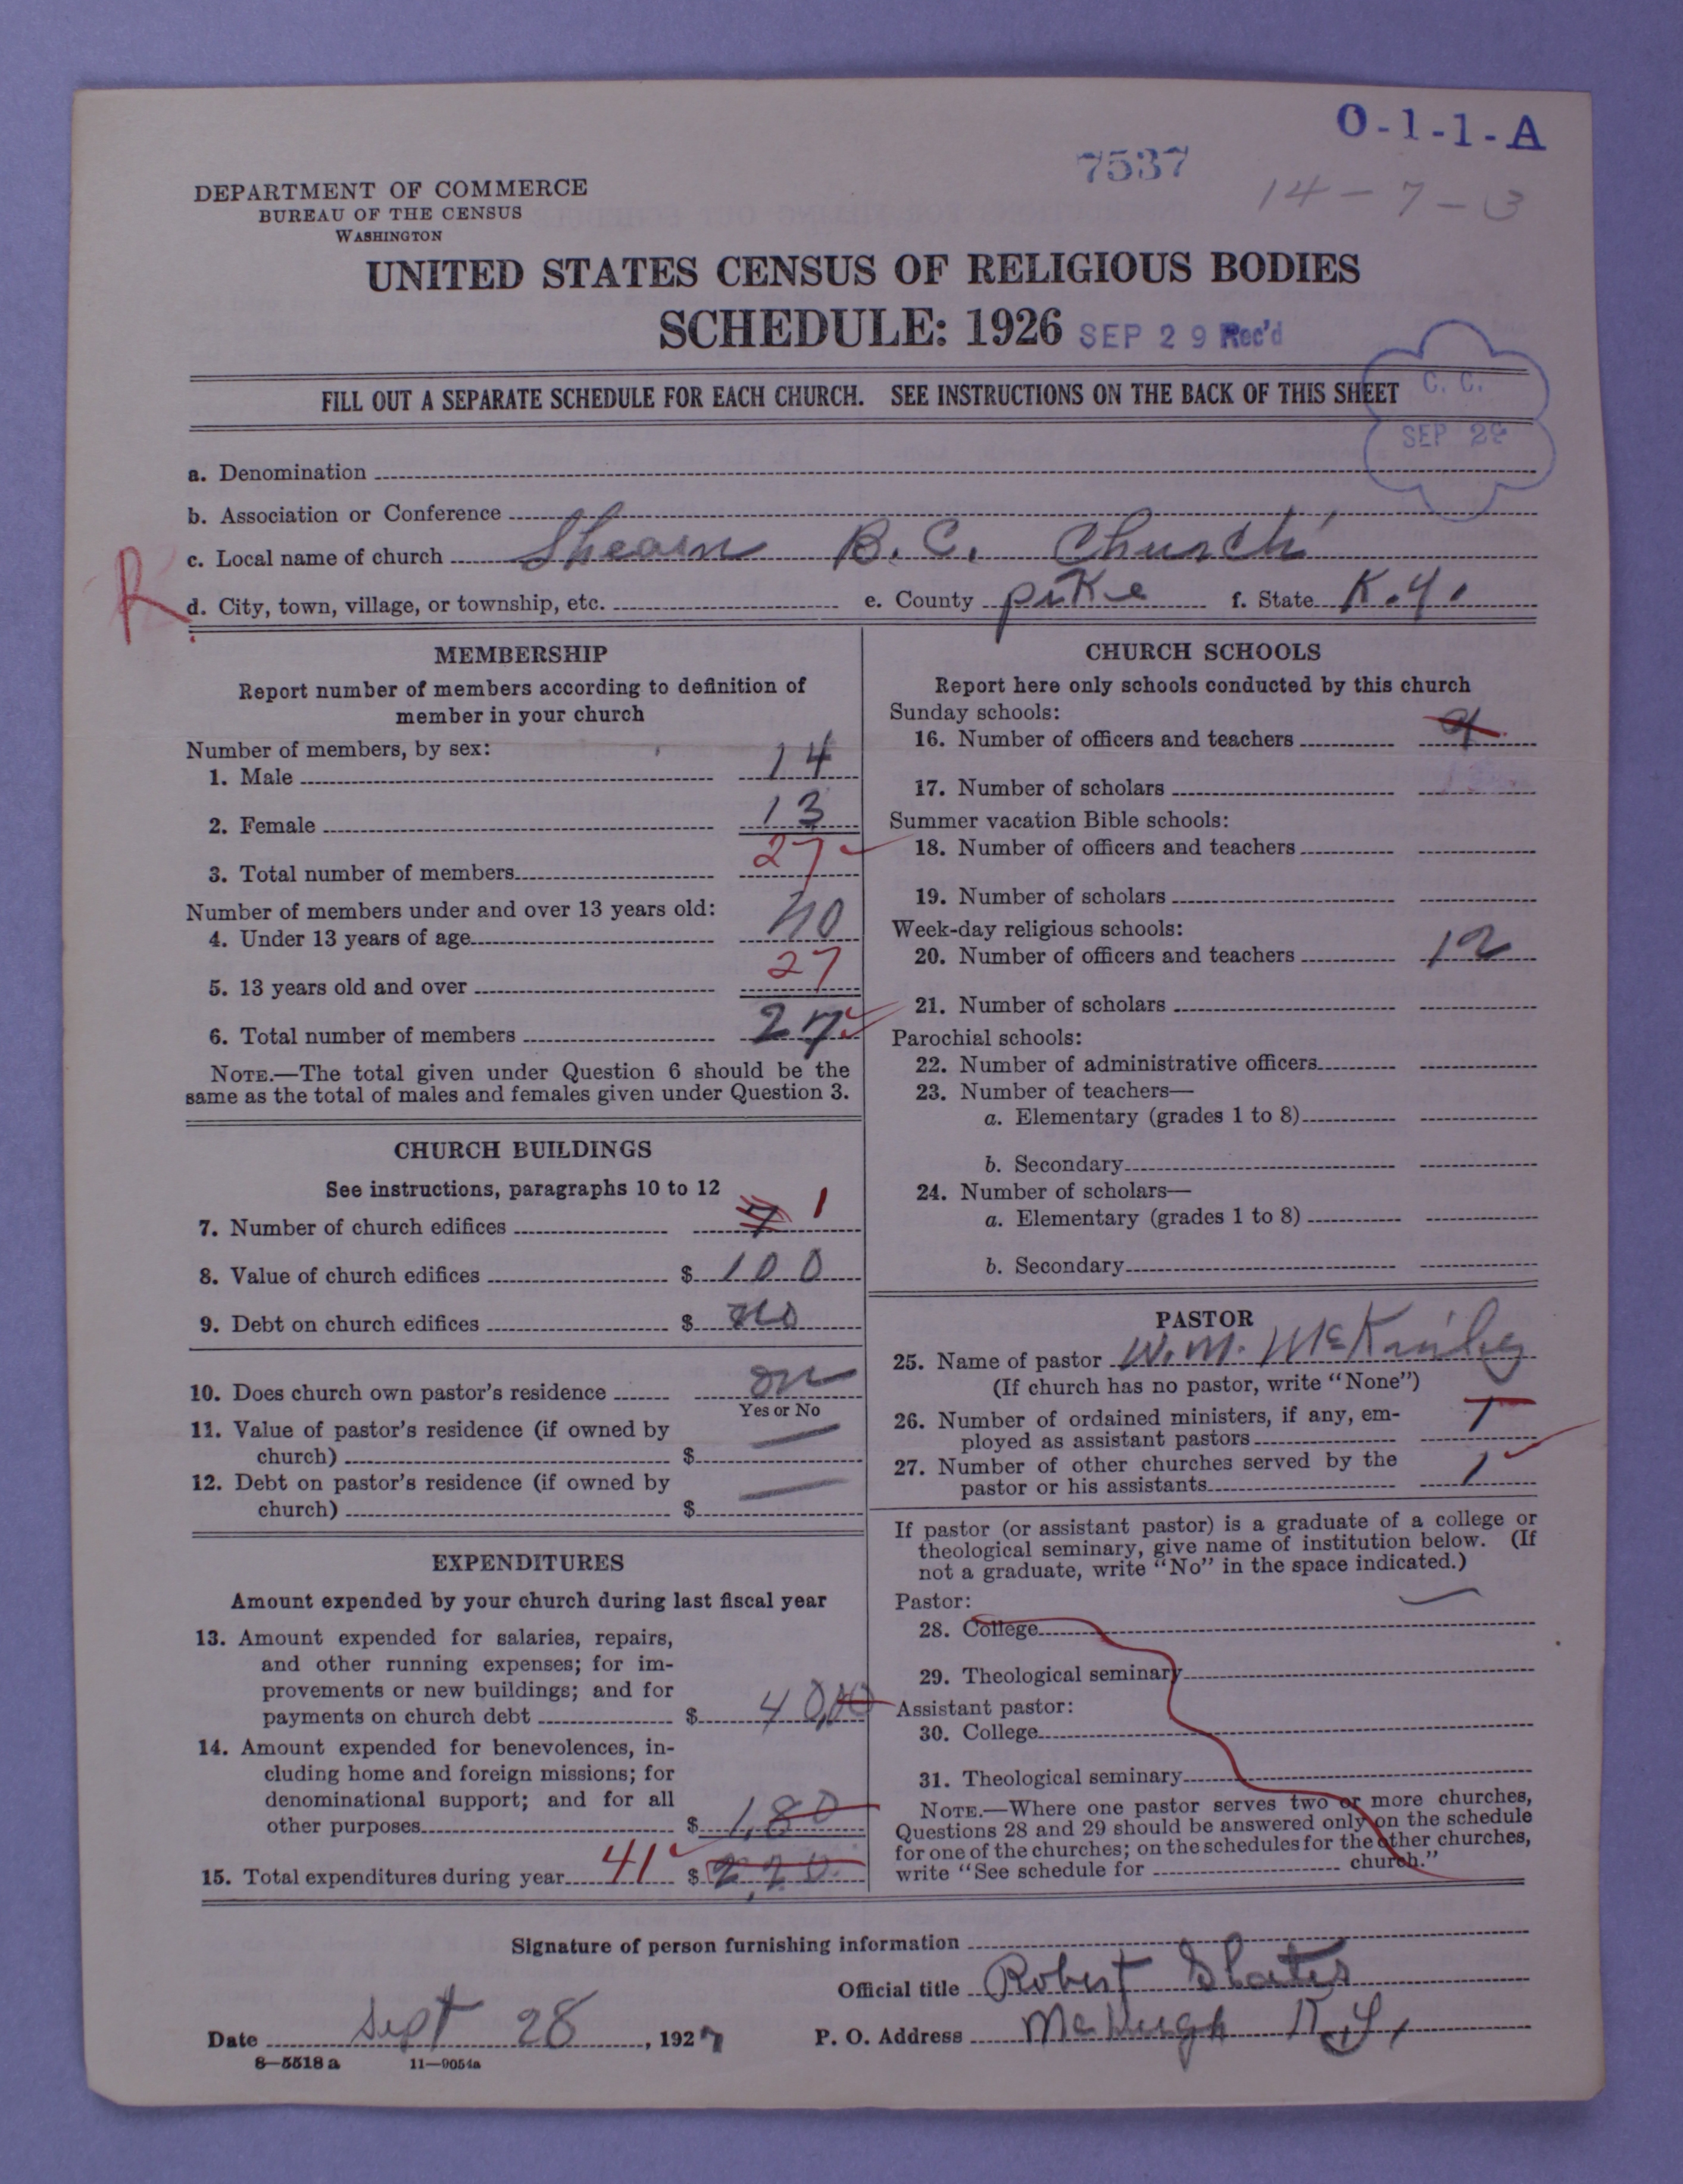 O-1-1-A
7537
14-7-3
DEPARTMENT OF COMMERCE
BUREAU OF THE CENSUS
WASHINGTON
UNITED STATES CENSUS OF RELIGIOUS BODIES
SCHEDULE: 1926 SEP 29 Rec'd
FILL OUT A SEPARATE SCHEDULE FOR EACH CHURCH. SEE INSTRUCTIONS ON THE BACK OF THIS SHEET
C. C.
SEP 29
a. Denomination
b. Association or Conference
c. Local name of church B. C. Church
R
d. City, town, village, or township, etc. e. County piKe f. State K.y.
MEMBERSHIP
Report number of members according to definition of
member in your church
Number of members, by sex:
1. Male 14
2. Female 13
3. Total number of members 27
Number of members under and over 13 years old:
4. Under 13 years of age no
5. 13 years old and over 27
6. Total number of members 27
NOTE.—The total given under Question 6 should be the
same as the total of males and females given under Question 3.
CHURCH BUILDINGS
See instructions, paragraphs 10 to 12
7. Number of church edifices 1
8. Value of church edifices $ 100
9. Debt on church edifices $ no
10. Does church own pastor's residence
Yes or No
11. Value of pastor's residence (if owned by
church) $
12. Debt on pastor's residence (if owned by
church) $
EXPENDITURES
Amount expended by your church during last fiscal year
13. Amount expended for salaries, repairs,
and other running expenses; for im-
provements or new buildings; and for
payments on church debt $ 40,00
14. Amount expended for benevolences, in-
cluding home and foreign missions; for
denominational support; and for all
other purposes $ 1,80
15. Total expenditures during year 41 $ 2,20
CHURCH SCHOOLS
Report here only schools conducted by this church
Sunday schools:
16. Number of officers and teachers
17. Number of scholars
Summer vacation Bible schools:
18. Number of officers and teachers
19. Number of scholars
Week-day religious schools:
20. Number of officers and teachers 12
21. Number of scholars
Parochial schools:
22. Number of administrative officers
23. Number of teachers—
a. Elementary (grades 1 to 8)
b. Secondary
24. Number of scholars—
a. Elementary (grades 1 to 8)
b. Secondary
PASTOR
25. Name of pastor W. M. McKinley
(If church has no pastor, write "None")
26. Number of ordained ministers, if any, em-
ployed as assistant pastors 1
27. Number of other churches served by the
pastor or his assistants 1
If pastor (or assistant pastor) is a graduate of a college or
theological seminary, give name of institution below. (If
not a graduate, write "No" in the space indicated.)
Pastor:
28. College
29. Theological seminary
Assistant pastor:
30. College
31. Theological seminary
NOTE.—Where one pastor serves two or more churches,
Questions 28 and 29 should be answered only on the schedule
for one of the churches; on the schedules for the other churches,
write "See schedule for church."
Signature of person furnishing information
Official title Robert
Date Sept 28, 1927 P. O. Address McVeigh K.y,
8-5518 a 11-9054a